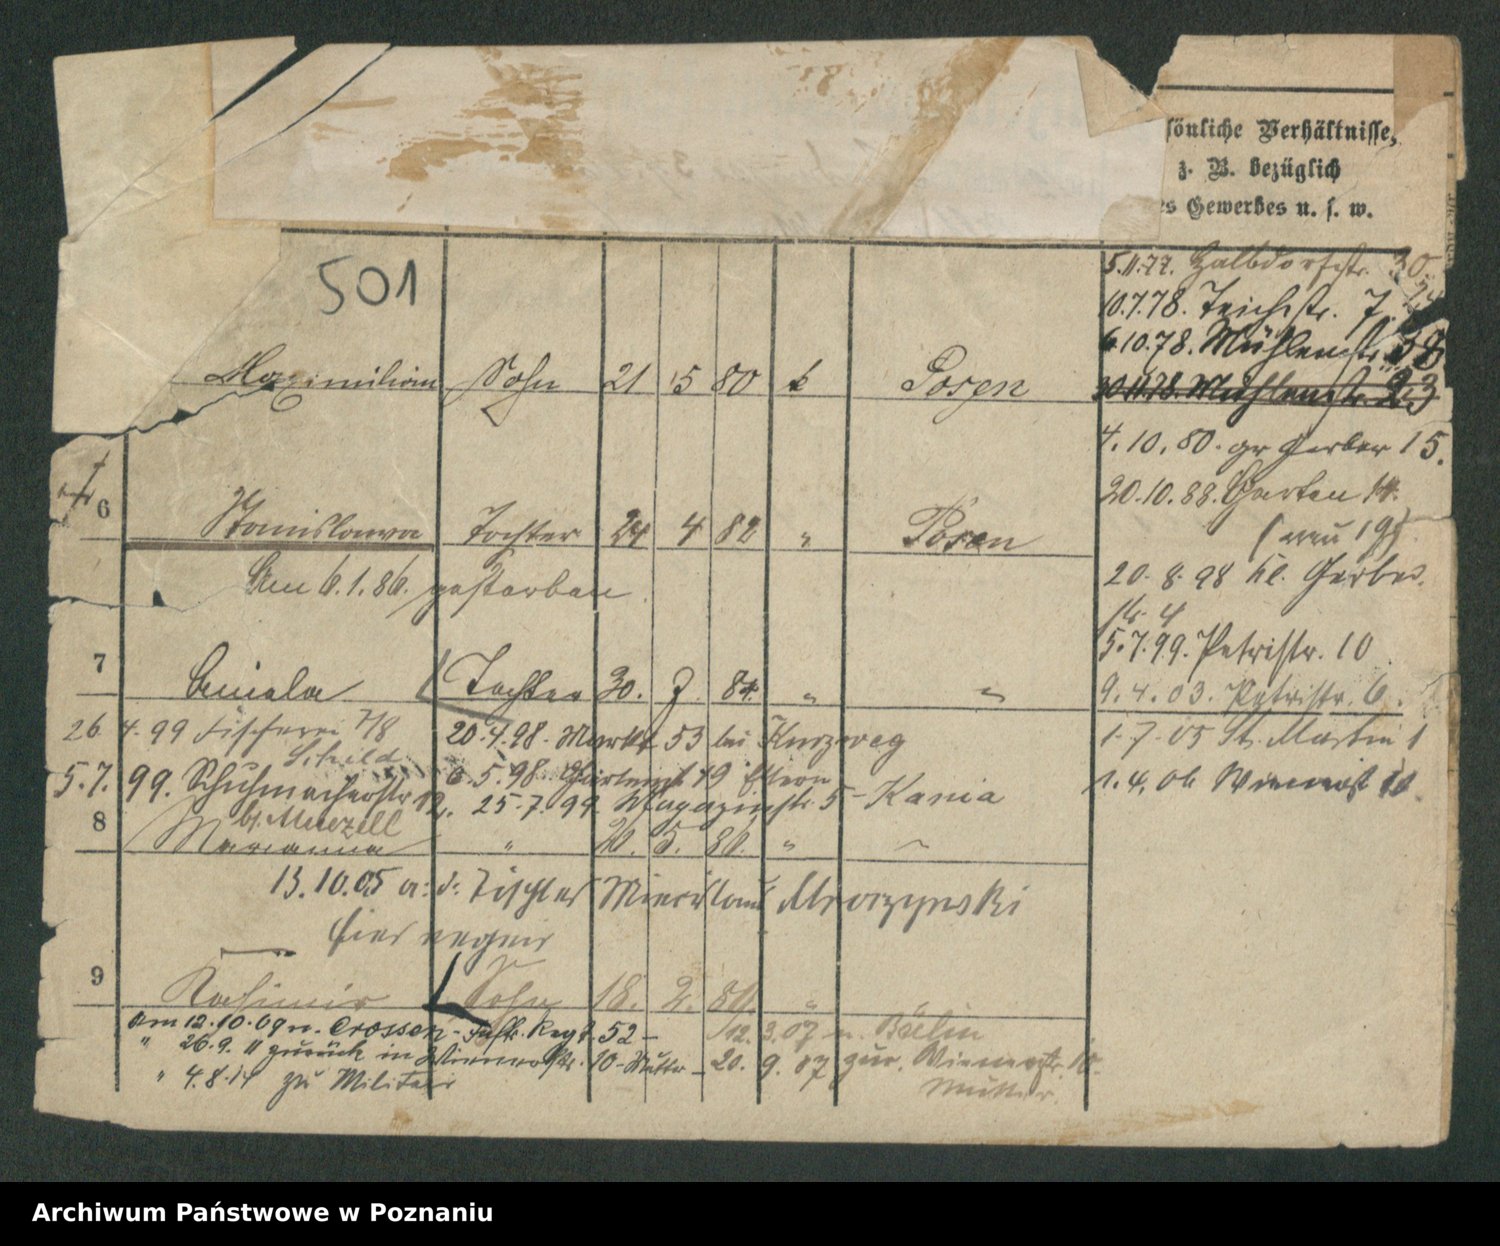 sönliche Verhältnisse,
z. B. bezüglich
es Gewerbes u. s. w.
501
5.11.77. Halbdorfstr. 30.
10.7.78. Teichstr. 7.
6.10.78. Mühlenstr. 38
30.11.78. Mühlenstr. 23
Maximilian Sohn 21 5 80 k Posen
4.10.80. gr Gerber 15.
20.10.88. Garten 14.
(neu 19)
6 Stanislawa Tochter 24 4 82 " Posen
Am 6.1.86. gestorben.
20.8.98 kl. Gerber
str. 4
5.7.99. Petristr. 10
7 Aniela Tochter 30. 7. 84. " "
9.4.03. Petristr. 6.
26 4.99 Fischerei 7/8 20.4.98. Markt 53 bei Kurzweg
1.7.05 St. Martin 1
Schild 6.5.98 Gartenst 19 Eltern
5.7.99. Schuhmacherstr 12. 25.7.99. Magazinstr. 5 - Kania
1.4.06 Wienerst 10
8 Marianna " 20. 5. 86. " "
13.10.05 a: d: Tischler Mieczislaus Mroczynski
hier
9 Kasimir Sohn 18. 2. "
Am 12.10.09 n. Crossen - Inftr. Regt. 52 - 12.3.07 n. Berlin
" 26.9.11 zurück in Wienerstr. 10 - Mutter - 20.9.07 zur. Wienerstr. 10.
Mutter.
" 4.8.14 zu Militair
Archiwum Państwowe w Poznaniu